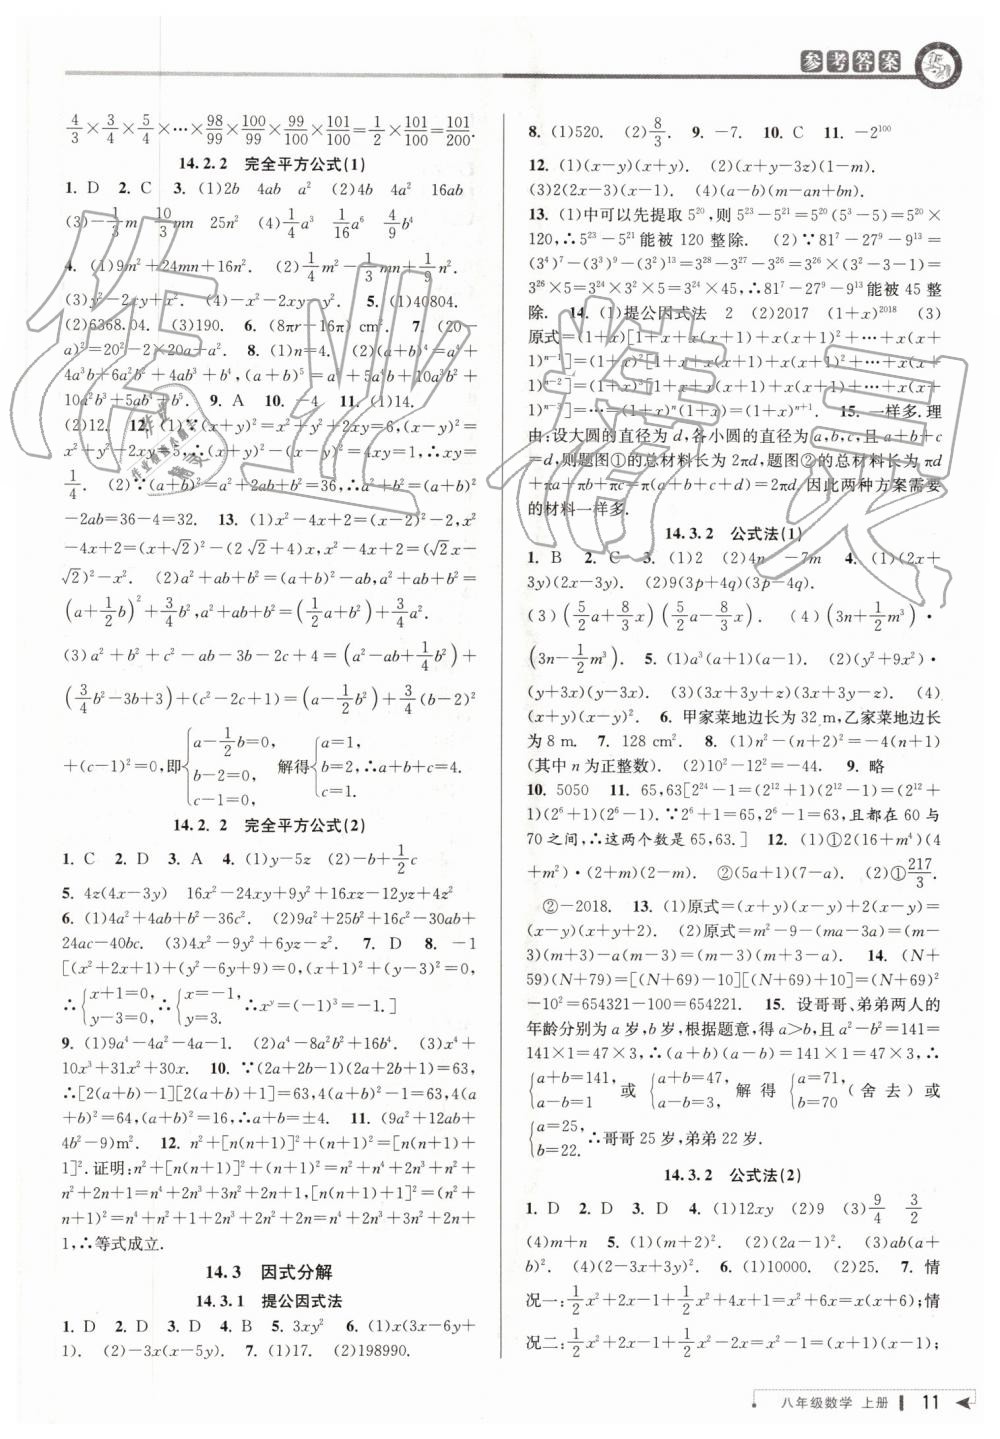 参考答案
4/3×3/4×5/4×…×98/99×100/99×99/100×101/100=1/2×101/100=101/200.
14.2.2 完全平方公式(1)
1. D 2. C 3. (1)2b 4ab a² (2)4b 4a² 16ab
(3)-1/3m 10/3mn 25n² (4)1/4a³ 1/16a⁶ 4/9b⁶
4. (1)9m²+24mn+16n². (2)1/4m²-1/3mn+1/9n².
(3)y²-2xy+x². (4)-x²-2xy-y². 5. (1)40804.
(2)6368.04. (3)190. 6. (8πr-16π) cm². 7. (20-
a)²=20²-2×20a+a². 8. (1)n=4. (2)(a+b)⁴=a⁴+
4a³b+6a²b²+4ab³+b⁴,(a+b)⁵=a⁵+5a⁴b+10a³b²+
10a²b³+5ab⁴+b⁵. 9. A 10. -4 11. (1)14.
(2)12. 12. (1)∵(x+y)²=x²+y²+2xy=6,(x-y)²=
x²+y²-2xy=5,∴(x+y)²-(x-y)²=4xy=1,∴xy=
1/4. (2)∵(a+b)²=a²+2ab+b²=36,∴a²+b²=(a+b)²
-2ab=36-4=32. 13. (1)x²-4x+2=(x-2)²-2,x²
-4x+2=(x+√2)²-(2√2+4)x,x²-4x+2=(√2x-
√2)²-x². (2)a²+ab+b²=(a+b)²-ab,a²+ab+b²=
(a+1/2b)²+3/4b²,a²+ab+b²=(1/2a+b)²+3/4a².
(3)a²+b²+c²-ab-3b-2c+4=(a²-ab+1/4b²)+
(3/4b²-3b+3)+(c²-2c+1)=(a-1/2b)²+3/4(b-2)²
+(c-1)²=0,即{a-1/2b=0, b-2=0, c-1=0, 解得{a=1, b=2, c=1. ∴a+b+c=4.
14.2.2 完全平方公式(2)
1. C 2. D 3. A 4. (1)y-5z (2)-b+1/2c
5. 4z(4x-3y) 16x²-24xy+9y²+16xz-12yz+4z²
6. (1)4a²+4ab+b²-36c². (2)9a²+25b²+16c²-30ab+
24ac-40bc. (3)4x²-9y²+6yz-z². 7. D 8. -1
[(x²+2x+1)+(y²-6y+9)=0,(x+1)²+(y-3)²=0,
∴{x+1=0, y-3=0, ∴{x=-1, y=3. ∴xʸ=(-1)³=-1.]
9. (1)9a⁴-4a²-4a-1. (2)a⁴-8a²b²+16b⁴. (3)x⁴+
10x³+31x²+30x. 10. ∵(2a+2b-1)(2a+2b+1)=63,
∴[2(a+b)-1][2(a+b)+1]=63,4(a+b)²-1=63,4(a
+b)²=64,(a+b)²=16,∴a+b=±4. 11. (9a²+12ab+
4b²-9)m². 12. n²+[n(n+1)]²+(n+1)²=[n(n+1)+
1]².证明:n²+[n(n+1)]²+(n+1)²=n²+n⁴+2n³+n²+
n²+2n+1=n⁴+2n³+3n²+2n+1,[n(n+1)+1]²=(n²+
n+1)²=n⁴+n³+n²+n³+n²+n+n²+n+1=n⁴+2n³+3n²+2n+
1,∴等式成立.
14.3 因式分解
14.3.1 提公因式法
1. D 2. D 3. D 4. B 5. 3xy² 6. (1)x(3x-6y+
1). (2)-3x(x-5y). 7. (1)17. (2)198990.
8. (1)520. (2)8/3. 9. -7. 10. C 11. -2¹⁰⁰
12. (1)(x-y)(x+y). (2)(x+y-3z)(1-m).
(3)2(2x-3)(x-1). (4)(a-b)(m-an+bn).
13. (1)中可以先提取 5²⁰,则 5²³-5²¹=5²⁰(5³-5)=5²⁰×
120,∴5²³-5²¹能被 120 整除. (2)∵81⁷-27⁹-9¹³=
(3⁴)⁷-(3³)⁹-(3²)¹³=3²⁸-3²⁷-3²⁶=3²⁶×(3²-3-1)=
3²⁶×5=3²⁴×3²×5=3²⁴×45,∴81⁷-27⁹-9¹³能被 45 整
除. 14. (1)提公因式法 2 (2)2017 (1+x)²⁰¹⁸ (3)
原式=(1+x)[1+x+x(1+x)+x(1+x)²+…+x(x+
1)ⁿ⁻¹]=(1+x)²[1+x+x(x+1)+x(1+x)²+…+x(x+
1)ⁿ⁻²]=(1+x)³[1+x+x(x+1)+x(1+x)²+…+x(x+
1)ⁿ⁻³]=…=(1+x)ⁿ(1+x)=(1+x)ⁿ⁺¹. 15. 一样多.理
由:设大圆的直径为 d,各小圆的直径为 a,b,c,且 a+b+c
=d,则题图①的总材料长为 2πd,题图②的总材料长为 πd
+πa+πb+πc=π(a+b+c+d)=2πd,因此两种方案需要
的材料一样多.
14.3.2 公式法(1)
1. B 2. C 3. (1)2 (2)4n -7m 4. (1)(2x+
3y)(2x-3y). (2)9(3p+4q)(3p-4q).
(3)(5/2a+8/3x)(5/2a-8/3x). (4)(3n+1/2m³)·
(3n-1/2m³). 5. (1)a³(a+1)(a-1). (2)(y²+9x²)·
(y+3x)(y-3x). (3)(3x+3y+z)(3x+3y-z). (4)
(x+y)(x-y)². 6. 甲家菜地边长为 32 m,乙家菜地边长
为 8 m. 7. 128 cm². 8. (1)n²-(n+2)²=-4(n+1)
(其中 n 为正整数). (2)10²-12²=-44. 9. 略
10. 5050 11. 65,63[2²⁴-1=(2¹²+1)(2¹²-1)=(2¹²+
1)(2⁶+1)(2⁶-1).∵2⁶+1=65,2⁶-1=63,且都在 60 与
70 之间,∴这两个数是 65,63.] 12. (1)①2(16+m⁴)(4
+m²)·(2+m)(2-m). ②(5a+1)(7-a). (2)①217/3.
②-2018. 13. (1)原式=(x+y)(x-y)+2(x-y)=
(x-y)(x+y+2). (2)原式=m²-9-(ma-3a)=(m-
3)(m+3)-a(m-3)=(m-3)(m+3-a). 14. (N+
59)(N+79)=[(N+69)-10][(N+69)+10]=(N+69)²
-10²=654321-100=654221. 15. 设哥哥、弟弟两人的
年龄分别为 a 岁,b 岁,根据题意,得 a>b,且 a²-b²=141=
141×1=47×3,∴(a+b)(a-b)=141×1=47×3,∴
{a+b=141, a-b=1 或 {a+b=47, a-b=3. 解得 {a=71, b=70 (舍去)或
{a=25, b=22. ∴哥哥 25 岁,弟弟 22 岁.
14.3.2 公式法(2)
1. D 2. D 3. D 4. (1)12xy (2)9 (3)9/4 3/2
(4)m+n 5. (1)(m+2)². (2)(2a-1)². (3)ab(a+
b)². (4)(2-3x+3y)². 6. (1)10000. (2)25. 7. 情
况一:1/2x²+2x-1+1/2x²+4x+1=x²+6x=x(x+6);情
况二:1/2x²+2x-1+1/2x²-2x=x²-1=(x+1)(x-1);
八年级数学 上册 11
作业精灵